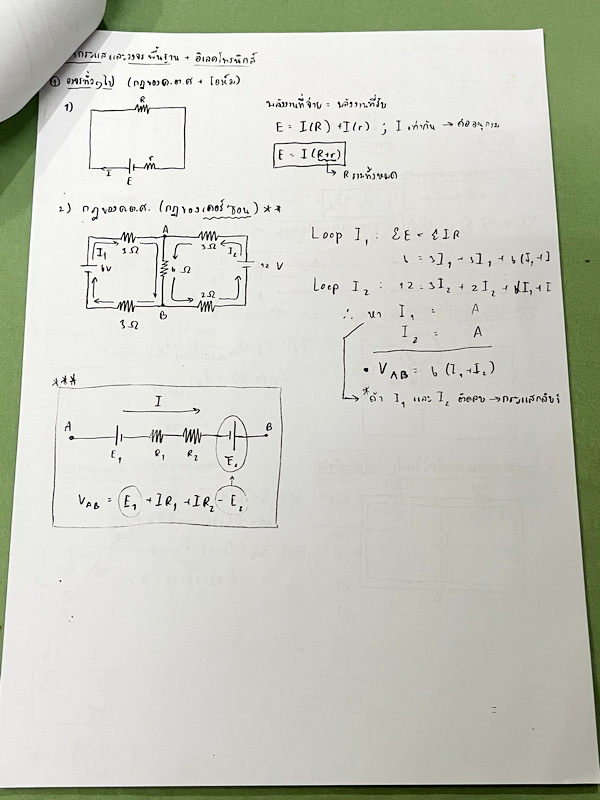 กระแสและวงจรพื้นฐาน + อิเลคโทรนิกส์
① วงจรทั่วๆไป (กฎของค.อ.ศ + โอห์ม)
1)
R
I
E
r
พลังงานที่จ่าย = พลังงานที่รับ
E = I(R) + I(r) ; I เท่ากัน → ต่ออนุกรม
E = I(R+r)
R รวมทั้งหมด
2) กฎของค.อ.ศ. (กฎของเคอร์ชอบ) **
A
3Ω
3Ω
I₁
6V
6 Ω
I₂
12 V
3Ω
B
2Ω
Loop I₁ : ΣE = ΣIR
6 = 3I₁ + 3I₁ + 6(I₁+I
Loop I₂ : 12 = 3I₂ + 2I₂ + 6(I₁+I
∴ หา I₁ = A
I₂ = A
• V_AB = 6 (I₁+I₂)
*ถ้า I₁ และ I₂ ติดลบ → กระแสกลับ
***
I
A
B
E₁
R₁
R₂
E₂
V_AB = E₁ + IR₁ + IR₂ - E₂